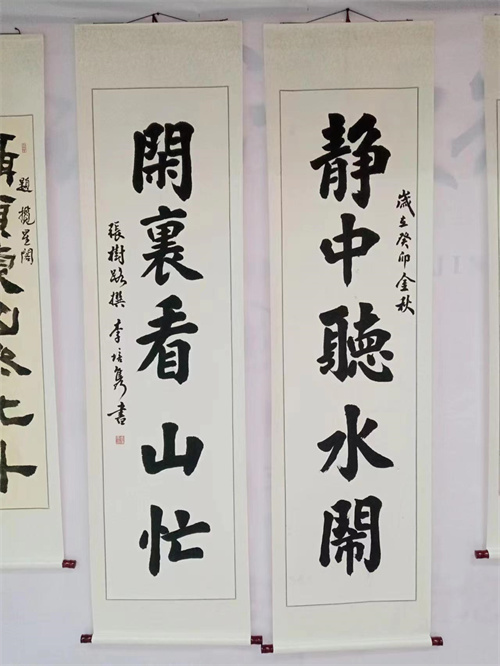 静中聽水鬧
歲在癸卯金秋
閑裏看山忙
張樹路撰 李培隽書
題攬星閣